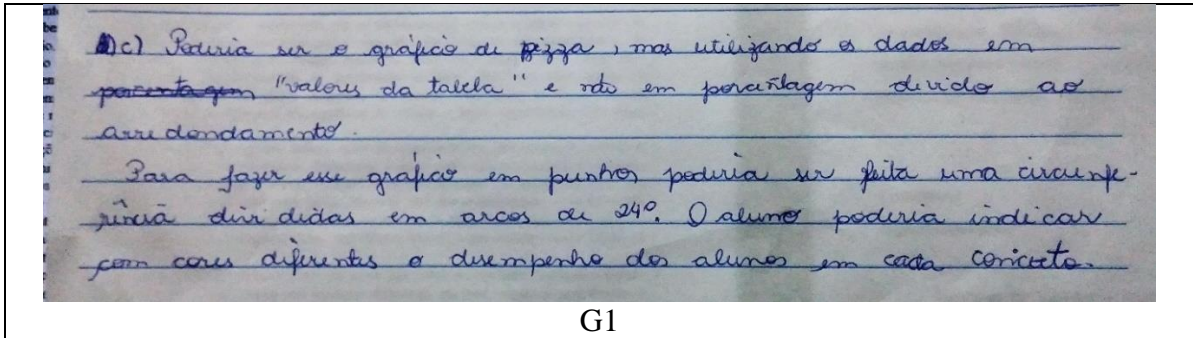 c) Poderia ser o gráfico de pizza, mas utilizando os dados em
porcentagem "valores da tabela" e não em porcentagem divido ao
arredondamento.
Para fazer esse gráfico em punhos poderia ser feita uma circunfe-
rência dividas em arcos de 24º. O aluno poderia indicar
com cores diferentes o desempenho dos alunos em cada conceito.
G1